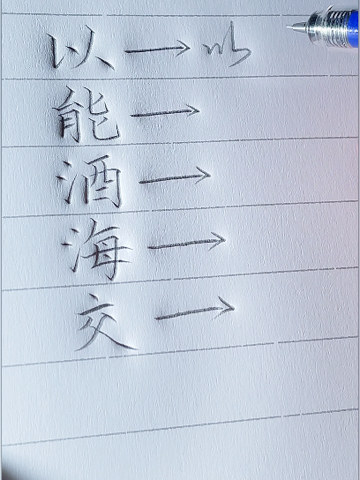 以 → 以
能 →
酒 →
海 →
交 →